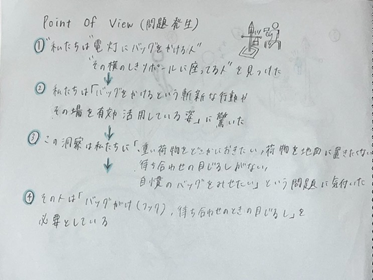 Point Of View (問題発生)
① "私たちは"電灯にバッグをかける人"
"その横のしきりポールに座ってる人"を見つけた
② 私たちは「バッグをかけるという斬新な行動が
その場を有効活用している姿」に驚いた
③ この洞察は私たちに「重い荷物をどこかに置きたい、荷物を地面に置きたくない
待ち合わせの目じるしがない、
自慢のバッグをみせたい」という問題に気付いた
④ その人は「バッグがけ(フック)、待ち合わせのときの目じるし」を
必要としている